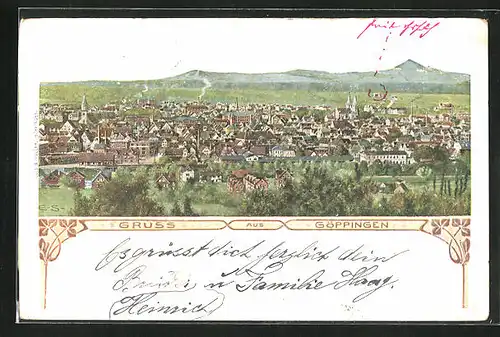 GRUSS AUS GÖPPINGEN
Es grüsst dich herzlich dein
u Familie Haag,
Heinrich